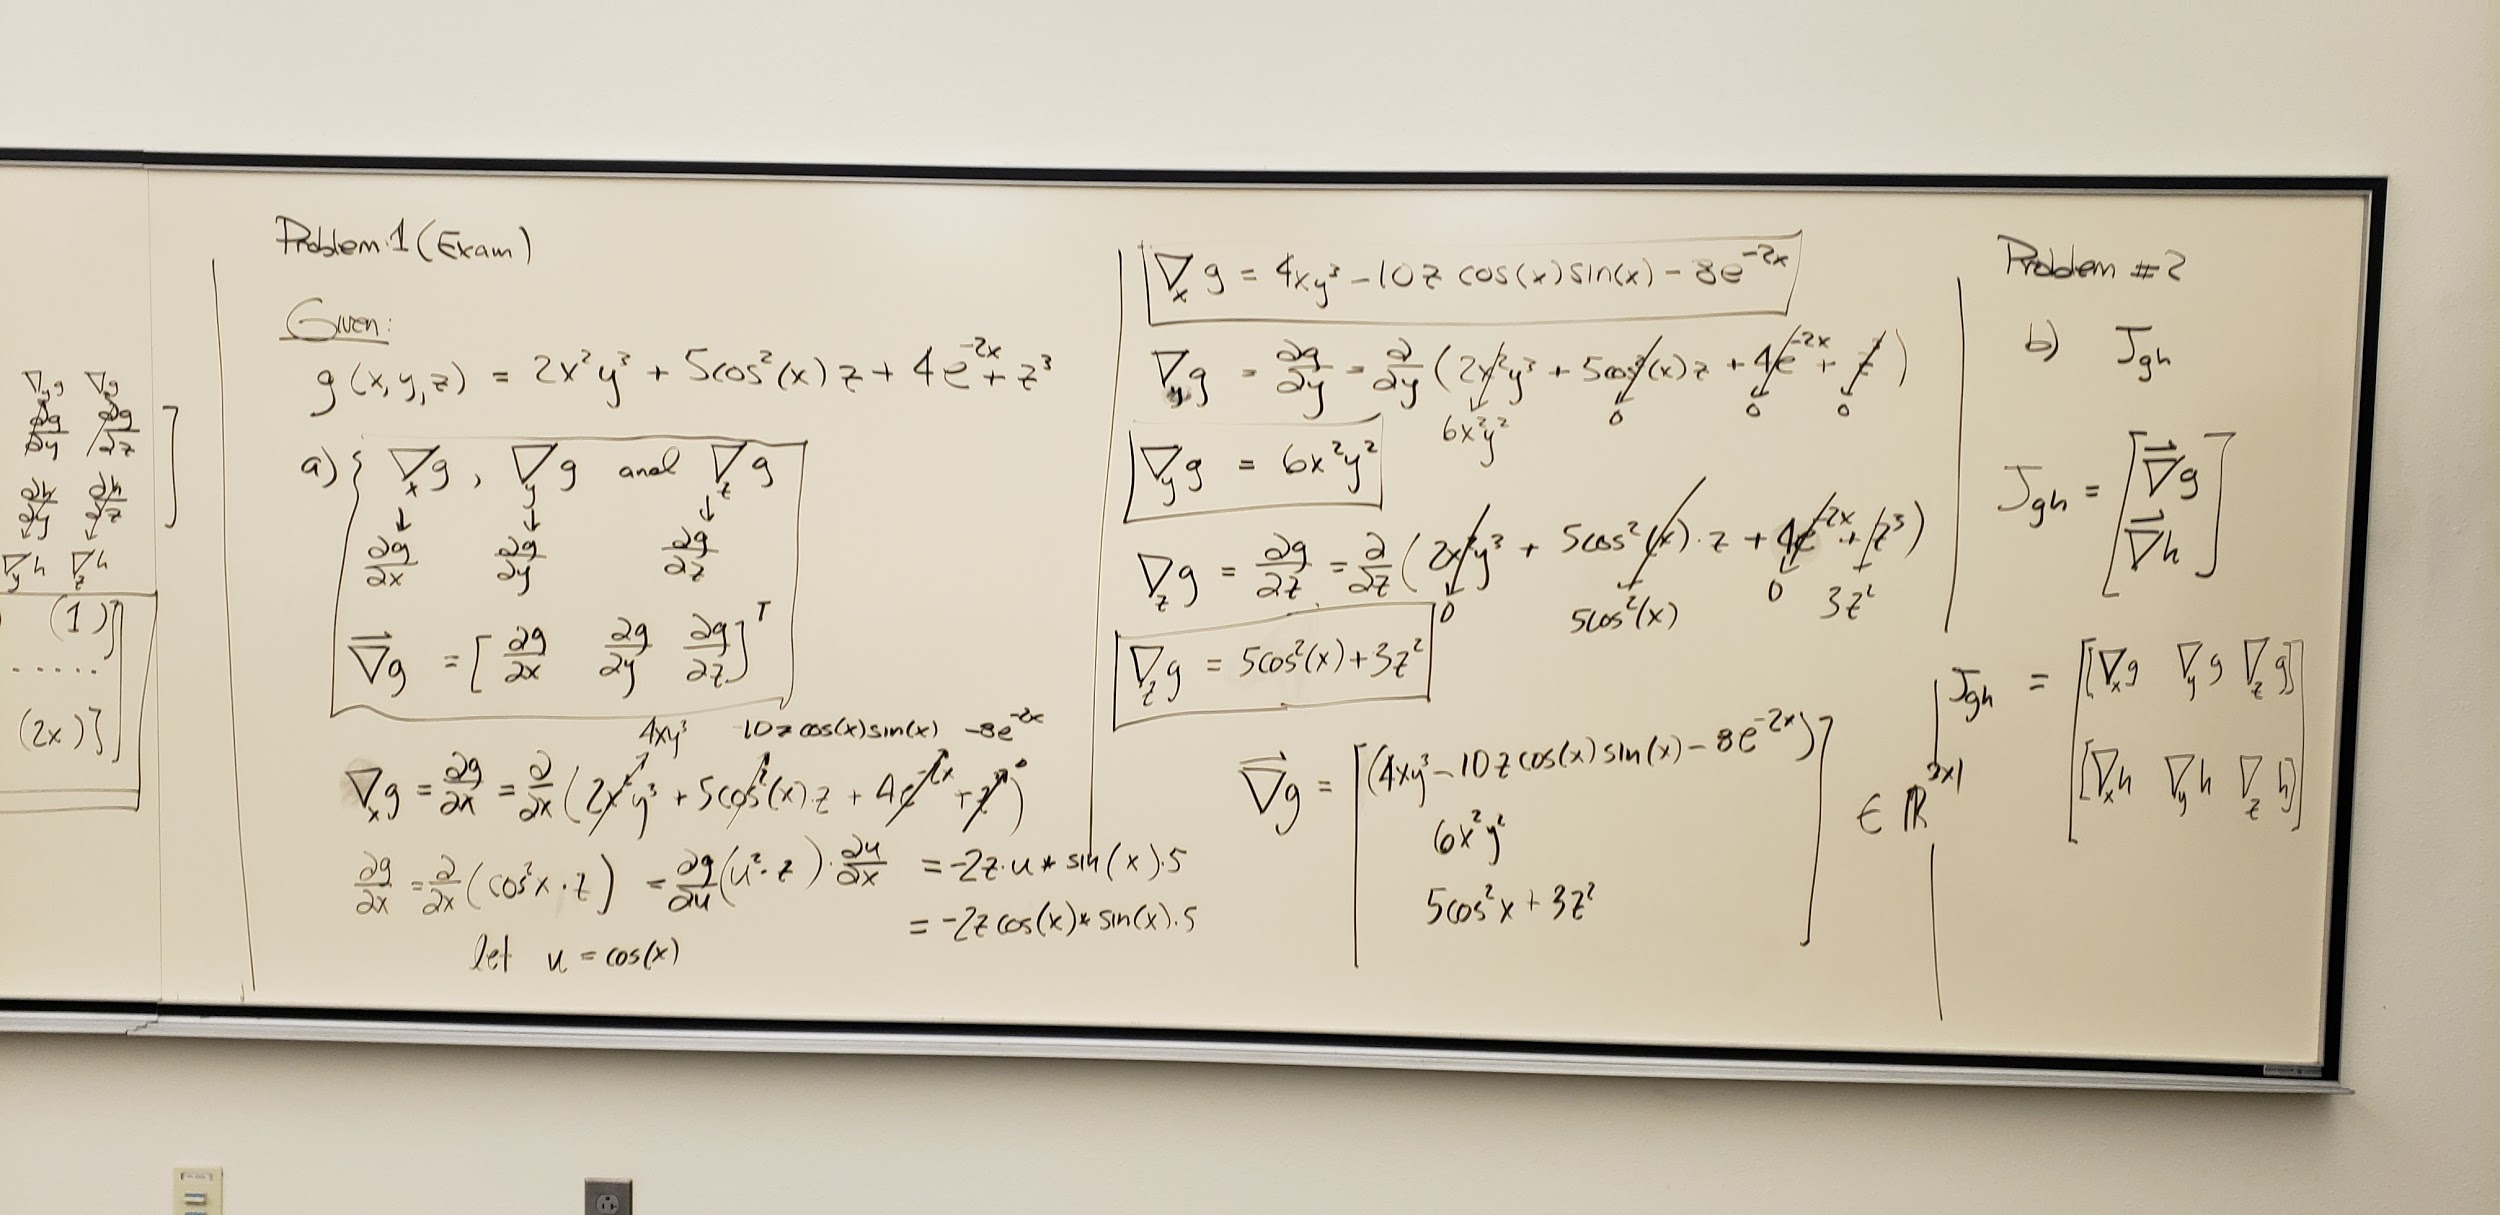 ∇_y g ∇_z g
∂g/∂y ∂g/∂z ]
∂h/∂y ∂h/∂z
∇_y h ∇_z h
(1)]
.....
(2x)]
Problem 1 (Exam)
Given:
g(x,y,z) = 2x²y³ + 5cos²(x) z + 4e^{-2x} + z³
a) { ∇_x g , ∇_y g and ∇_z g
↓ ↓ ↓
∂g/∂x ∂g/∂y ∂g/∂z
∇⃗g = [ ∂g/∂x ∂g/∂y ∂g/∂z ]^T
4xy³ -10z cos(x) sin(x) -8e^{-2x}
∇_x g = ∂g/∂x = ∂/∂x (2x²y³ + 5cos²(x)·z + 4e^{-2x} + z³) 0
∂g/∂x = ∂/∂x (cos²x · z) = ∂g/∂u (u²·z) · ∂u/∂x = -2z·u * sin(x)·5
= -2z cos(x) * sin(x)·5
let u = cos(x)
∇_x g = 4xy³ - 10z cos(x) sin(x) - 8e^{-2x}
∇_y g = ∂g/∂y = ∂/∂y (2x²y³ + 5cos²(x) z + 4e^{-2x} + z³)
6x²y² 0 0 0
∇_y g = 6x²y²
∇_z g = ∂g/∂z = ∂/∂z (2x²y³ + 5cos²(x)·z + 4e^{-2x} + z³)
0 5cos²(x) 0 3z²
∇_z g = 5cos²(x) + 3z²
∇⃗g = [ (4xy³ - 10z cos(x) sin(x) - 8e^{-2x})
6x²y²
5cos²x + 3z² ] ∈ ℝ^{3x1}
Problem #2
b) J_gh
J_gh = [ ∇⃗g
∇⃗h ]
J_gh = [ [∇_x g ∇_y g ∇_z g]
[∇_x h ∇_y h ∇_z h] ]